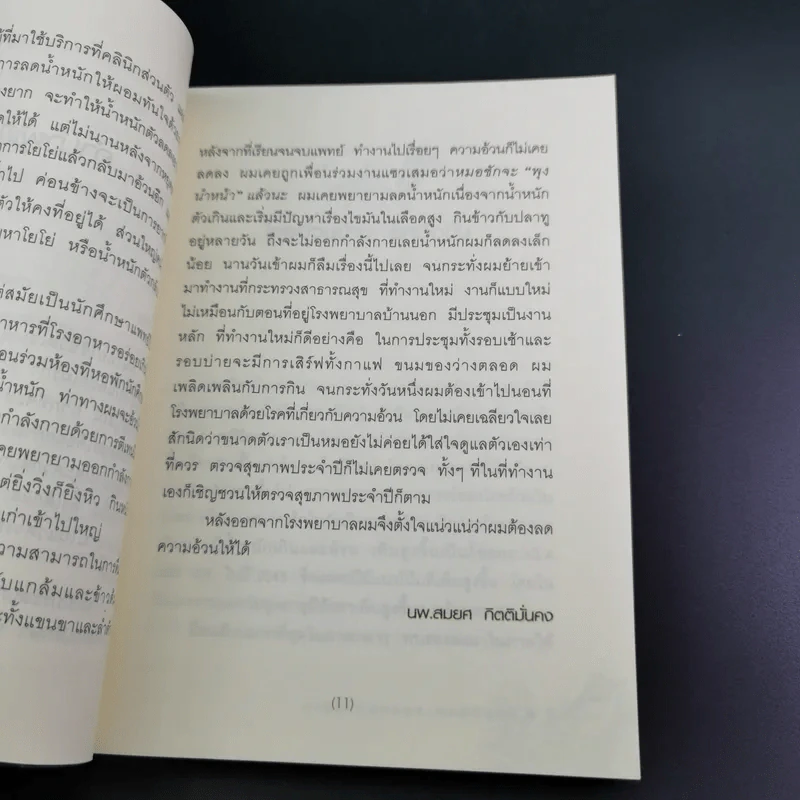 ที่มาใช้บริการที่คลินิกส่วนตัว
การลดน้ำหนักให้ผอมทันใจด้วย
งยาก จะทำให้น้ำหนักตัวลดลง
ให้ได้ แต่ไม่นานหลังจาก
การโยโย่แล้วกลับมาอ้วนอีก
ไป ค่อนข้างจะเป็นการยาก
ตัวให้คงที่อยู่ได้ ส่วนใหญ่
หาโยโย่ หรือน้ำหนักตัว
สมัยเป็นนักศึกษาแพทย์
อาหารที่โรงอาหารอร่อย
อนร่วมห้องที่หอพัก
น้ำหนัก ท่าทางผมจะอ้วน
กำลังกายด้วยการ
คยพยายามออกกำลัง
ยิ่งวิ่งก็ยิ่งหิว
เก่าเข้าไปใหญ่
ความสามารถในการ
บแกล้มและข้าว
ทั้งแขนขาและ
หลังจากที่เรียนจนจบแพทย์ ทำงานไปเรื่อยๆ ความอ้วนก็ไม่เคย
ลดลง ผมเคยถูกเพื่อนร่วมงานแซวเสมอว่าหมอชักจะ “พุง
นำหน้า” แล้วนะ ผมเคยพยายามลดน้ำหนักเนื่องจากน้ำหนัก
ตัวเกินและเริ่มมีปัญหาเรื่องไขมันในเลือดสูง กินข้าวกับปลาทู
อยู่หลายวัน ถึงจะไม่ออกกำลังกายเลยน้ำหนักผมก็ลดลงเล็ก
น้อย นานวันเข้าผมก็ลืมเรื่องนี้ไปเลย จนกระทั่งผมย้ายเข้า
มาทำงานที่กระทรวงสาธารณสุข ที่ทำงานใหม่ งานก็แบบใหม่
ไม่เหมือนกับตอนที่อยู่โรงพยาบาลบ้านนอก มีประชุมเป็นงาน
หลัก ที่ทำงานใหม่ก็ดีอย่างคือ ในการประชุมทั้งรอบเช้าและ
รอบบ่ายจะมีการเสิร์ฟทั้งกาแฟ ขนมของว่างตลอด ผม
เพลิดเพลินกับการกิน จนกระทั่งวันหนึ่งผมต้องเข้าไปนอนที่
โรงพยาบาลด้วยโรคที่เกี่ยวกับความอ้วน โดยไม่เคยเฉลียวใจเลย
สักนิดว่าขนาดตัวเราเป็นหมอยังไม่ค่อยได้ใส่ใจดูแลตัวเองเท่า
ที่ควร ตรวจสุขภาพประจำปีก็ไม่เคยตรวจ ทั้งๆ ที่ในที่ทำงาน
เองก็เชิญชวนให้ตรวจสุขภาพประจำปีก็ตาม
หลังออกจากโรงพยาบาลผมจึงตั้งใจแน่วแน่ว่าผมต้องลด
ความอ้วนให้ได้
นพ.สมยศ กิตติมั่นคง
(11)